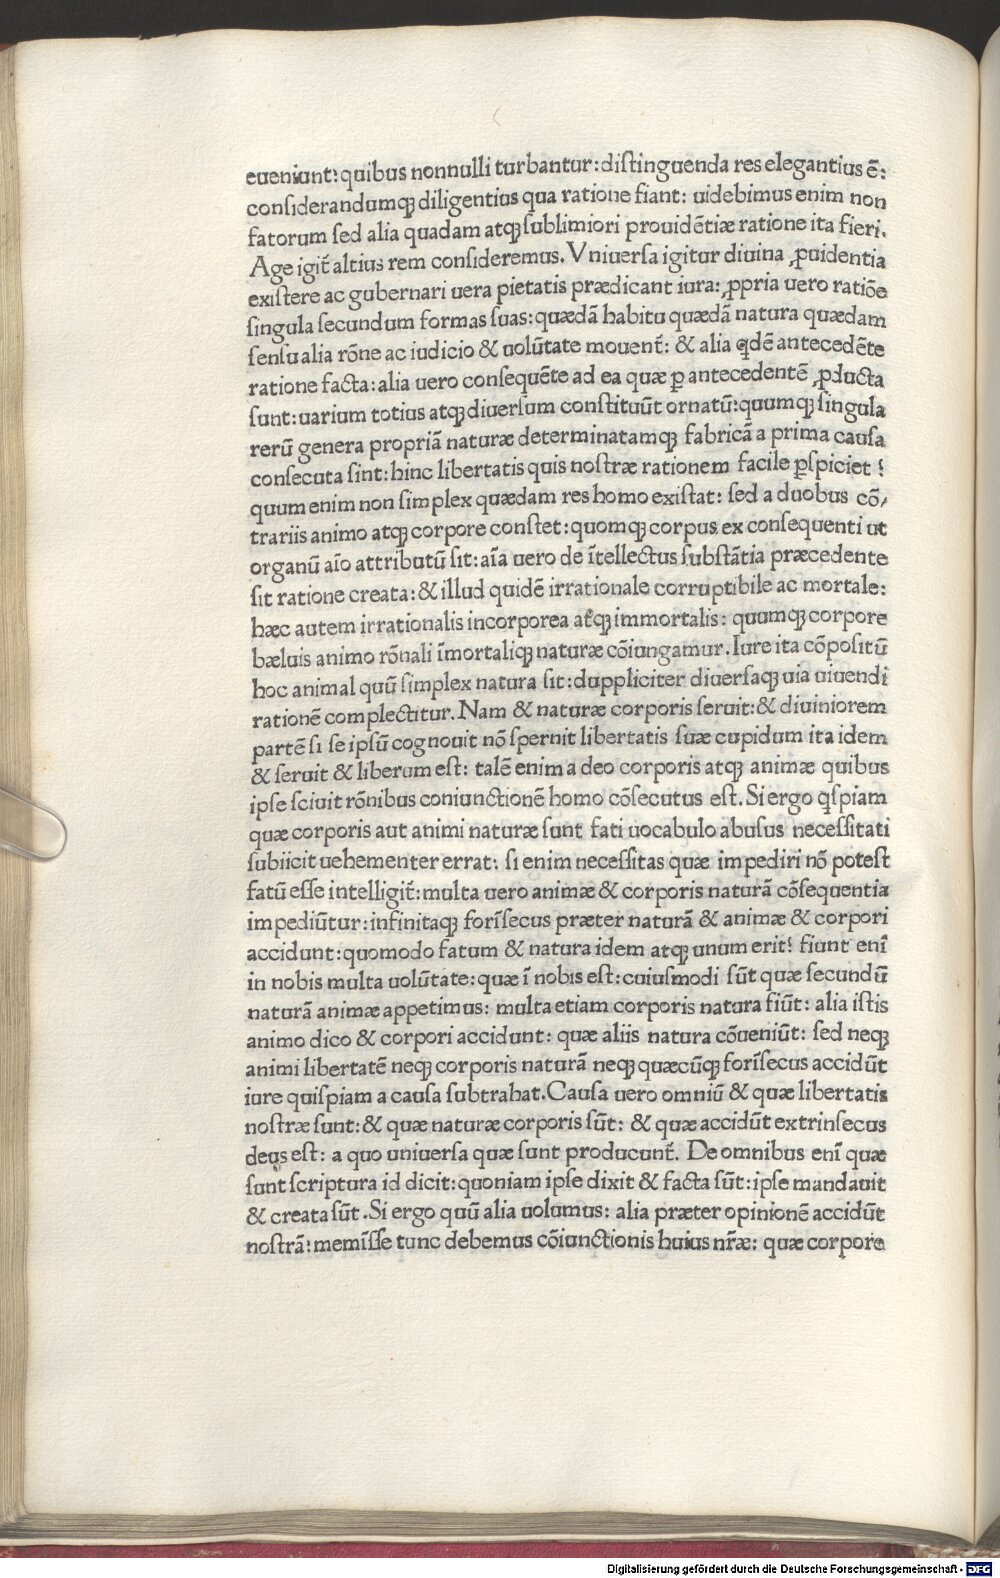 eueniunt: quibus nonnulli turbantur: distinguenda res elegantius ē:
considerandumq; diligentius qua ratione fiant: uidebimus enim non
fatorum sed alia quadam atq; sublimiori prouidētiæ ratione ita fieri.
Age igit̄ altius rem consideremus. Vniuersa igitur diuina ꝓuidentia
existere ac gubernari uera pietatis prædicant iura: ꝓpria uero ratiōe
singula secundum formas suas: quædā habitu quædā natura quædam
sensu alia rōne ac iudicio & uolūtate mouent̄: & alia qdē antecedēte
ratione facta: alia uero consequēte ad ea quæ ꝑ antecedentē ꝓducta
sunt: uarium totius atq; diuersum constituūt ornatū: quumq; singula
rerū genera propriā naturæ determinatamq; fabricā a prima causa
consecuta sint: hinc libertatis quis nostræ rationem facile ꝑspiciet?
quum enim non simplex quædam res homo existat: sed a duobus cō/
trariis animo atq; corpore constet: quomq; corpus ex consequenti ut
organū aīo attributū sit: aīa uero de ītellectus substātia præcedente
sit ratione creata: & illud quidē irrationale corruptibile ac mortale:
hæc autem irrationalis incorporea atq; immortalis: quumq; corpore
bæluis animo rōnali īmortaliq; naturæ cōiungamur. Iure ita cōpositū
hoc animal quū simplex natura sit: duppliciter diuersaq; uia uiuendi
rationē complectitur. Nam & naturæ corporis seruit: & diuiniorem
partē si se ipsū cognouit nō spernit libertatis suæ cupidum ita idem
& seruit & liberum est: talē enim a deo corporis atq; animæ quibus
ipse sciuit rōnibus coniunctionē homo cōsecutus est. Si ergo qspiam
quæ corporis aut animi naturæ sunt fati uocabulo abusus necessitati
subiicit uehementer errat: si enim necessitas quæ impediri nō potest
fatū esse intelligit̄: multa uero animæ & corporis naturā cōsequentia
impediūtur: infinitaq; forīsecus præter naturā & animæ & corpori
accidunt: quomodo fatum & natura idem atq; unum erit? fiunt enī
in nobis multa uolūtate: quæ ī nobis est: cuiusmodi sūt quæ secundū
naturā animæ appetimus: multa etiam corporis natura fiūt: alia istis
animo dico & corpori accidunt: quæ aliis natura cōueniūt: sed neq;
animi libertatē neq; corporis naturā neq; quæcūq; forīsecus accidūt
iure quispiam a causa subtrahat. Causa uero omniū & quæ libertatis
nostræ sunt: & quæ naturæ corporis sūt: & quæ accidūt extrinsecus
deus est: a quo uniuersa quæ sunt producunt̄. De omnibus enī quæ
sunt scriptura id dicit: quoniam ipse dixit & facta sūt: ipse mandauit
& creata sūt. Si ergo quū alia uolumus: alia præter opinionē accidūt
nostrā: memīsse tunc debemus cōiunctionis huius nr̄æ: quæ corpore
Digitalisierung gefördert durch die Deutsche Forschungsgemeinschaft - DFG